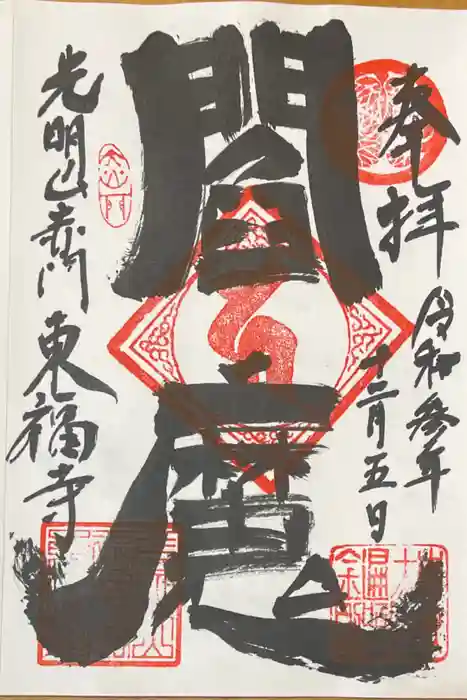 奉拝
令和参年
十二月五日
閻魔
光明山赤門東福寺